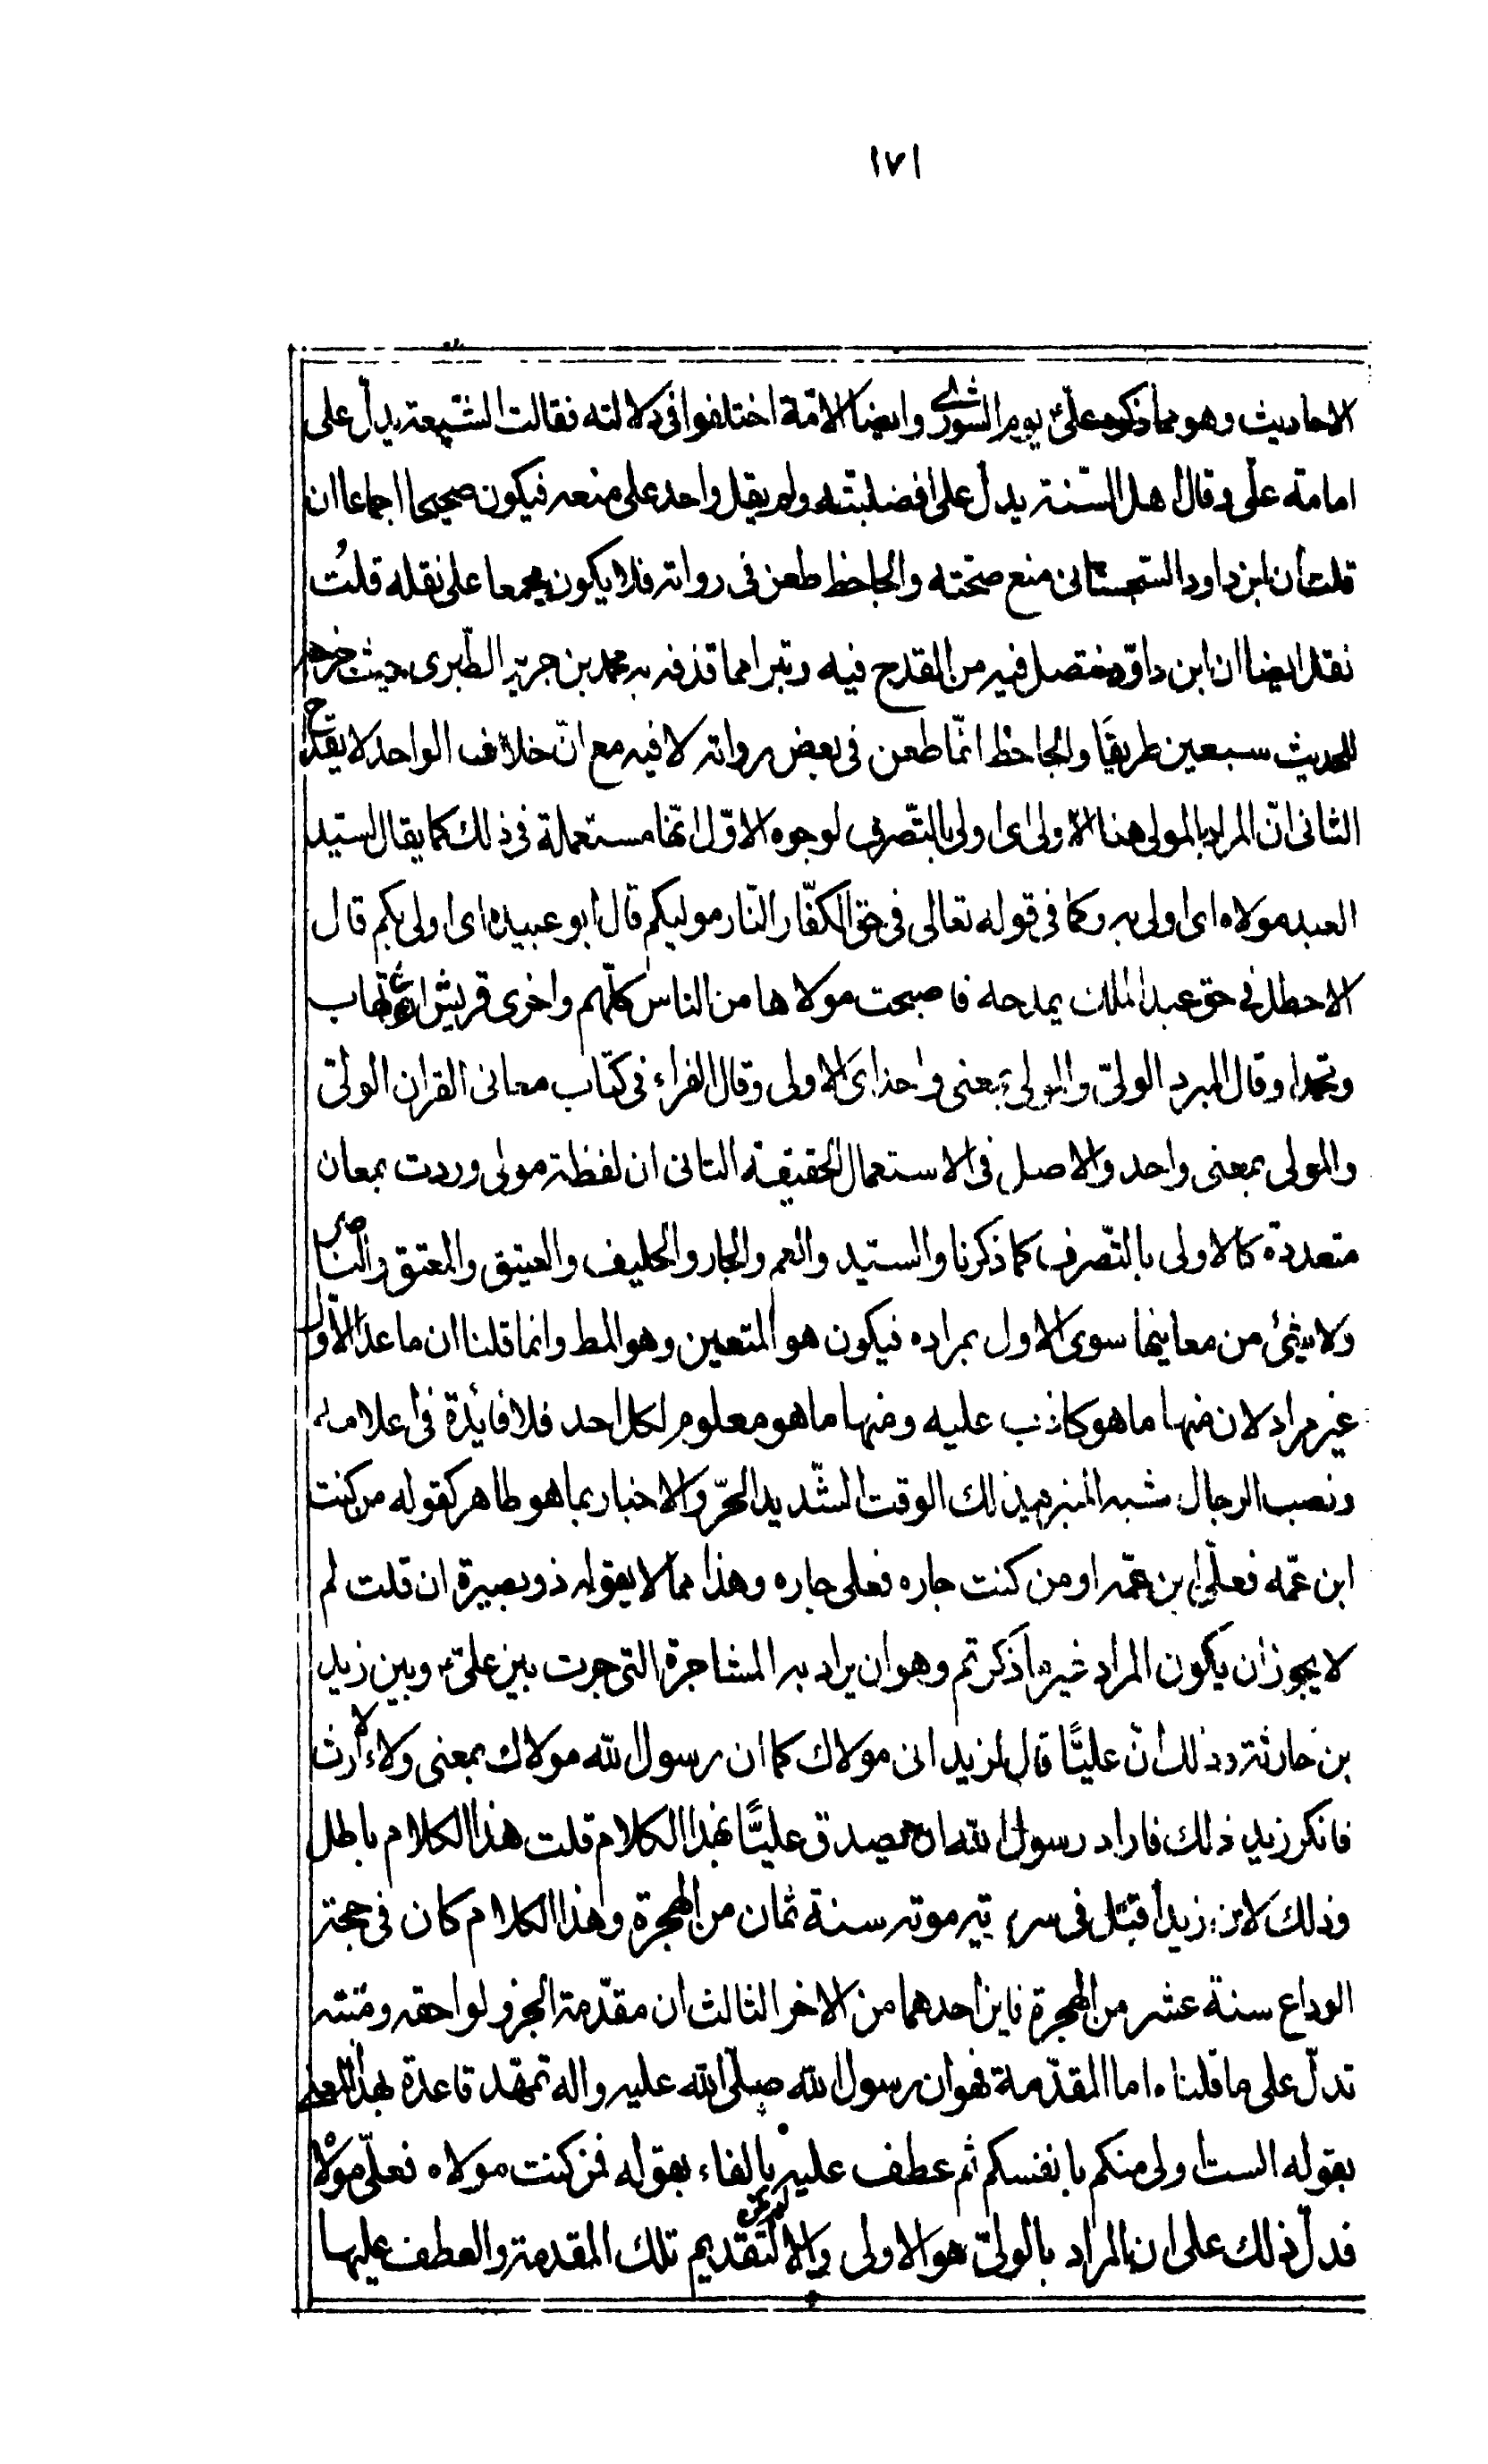 ١٧١
الاحاديث وهو مما ذكره على يوم الشورى وايضا الامّة اختلفوا فى دلالته فقالت الشّيعة يدلّ على
امامة علىّ وقال اهل السّنة يدل على افضليّته ولم يقل واحد على منعه فيكون صحيحا اجماعا ان
قلت ان ابن داود السّجستانى منع صحّته والجاحظ طعن فى رواته فلا يكون مجمعا على نقله قلتُ
نقل ايضا ان ابن داوّد فيه من القدح فيه وتبرا مما قذفه به محمد بن جرير الطّبرى حيث
للحديث سبعين طريقًا والجاحظ انّما طعن فى بعض رواته لا فيه مع انّ خلاف الواحد لا يقدح
الثانى انّ المراد بالمولى هنا الاولى اى اولى بالتّصرف لوجوه الاوّل انّها مستعملة فى ذلك كما يقال لسيد
العبد مولاه اى اولى به وكما فى قوله تعالى فى حق الكفّار النّار موليكم قال ابو عبيده اى اولى بكم قال
الاخطل فى حق عبد الملك يمدحه فاصبحت مولاها من الناس كلّهم واخرى قريش ان تهاب
وتحمدا وقال المبرد الولىّ والمولى بمعنى واحد اى الاولى وقال الفراء فى كتاب معانى القران الولىّ
والمولى بمعنى واحد والاصل فى الاستعمال الحقيقة الثانى ان لفظة مولى وردت بمعان
متعددة كالاولى بالتّصرف كما ذكرنا والسيّد والعم والجار والحليف والعتيق والمعتق والنّاصر
ولا شئ من معانيها سوى الاول بمراده فيكون هو المتعين وهو المط وانما قلنا ان ما عدا الاوّل
غير مراد لان منها ما هو كاذب عليه ومنها ما هو معلوم لكل احد فلا فايدة فى اعلامه
ونصب الرحال شبه المنبر فى ذلك الوقت الشّديد الحرّ والاخبار بما هو ظاهر كقوله من كنت
ابن عمّه فعلىّ ابن عمّه او من كنت جاره فعلى جاره وهذا مما لا يقوله ذو بصيرة ان قلت لم
لا يجوز ان يكون المراد غير ما ذكرتم وهو ان يراد به المشاجرة التى جرت بين علىّ وبين زيد
بن حارثة وذلك انّ عليًّا قال لزيد انى مولاك كما ان رسول الله مولاك بمعنى ولاء الارث
فانكر زيد ذلك فاراد رسول الله ان يصدق عليًّا بهذا الكلام قلت هذا الكلام باطل
وذلك لان زيدا قتل فى سرية موته سنة ثمان من الهجرة وهذا الكلام كان فى حجة
الوداع سنة عشر من الهجرة فاين احدهما من الاخر الثالث ان مقدّمة الخبر ولواحقه ومتنه
تدلّ على ما قلناه اما المقدّمة فهو ان رسول الله صلّى الله عليه واله تمهّد قاعدة بهذا المعنى
بقوله الست اولى منكم بانفسكم ثم عطف عليه بالفاء بقوله فمن كنت مولاه فعلىّ مولاه
فدلّ ذلك على ان المراد بالولىّ هو الاولى والا لم يكن لتقديم تلك المقدمة والعطف عليها